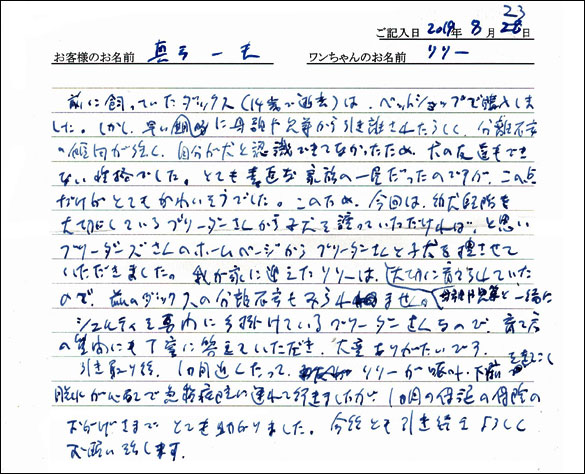 ご記入日 2019年 8月 23日
お客様のお名前 真弓 一夫 ワンちゃんのお名前 リリー
前に飼っていたダックス(14歳で逝去)は、ペットショップで購入しま
した。しかし、早い時に母親や兄弟から引き離されたらしく、分離不安
の傾向が強く、自分が犬と認識できてなかったため、犬の友達もでき
ない性格でした。とても身近な家族の一員だったのですが、この点
だけがとてもかわいそうでした。このため、今回は、幼犬段階を
大切にしているブリーダーさんから子犬を譲っていただければ、と思い
ブリーダーズさんのホームページからブリーダーさんと子犬を捜させて
いただきました。我が家に迎えたリリーは、大切に育てられていた
ので、前のダックスの分離不安も見られません。母親や兄弟と一緒に
シェルティを専門に手掛けているブリーダーさんなので、育て方
の質問にも丁寧に答えていただき、大変ありがたいです。
引き取り後、1ヶ月近くたって、リリーが嘔吐、下痢を起こし
脱水が心配で急患病院に連れて行きましたが、1ヶ月の保証の保険の
おかげさまで とても助かりました。今後とも引き続きよろしく
お願い致します。